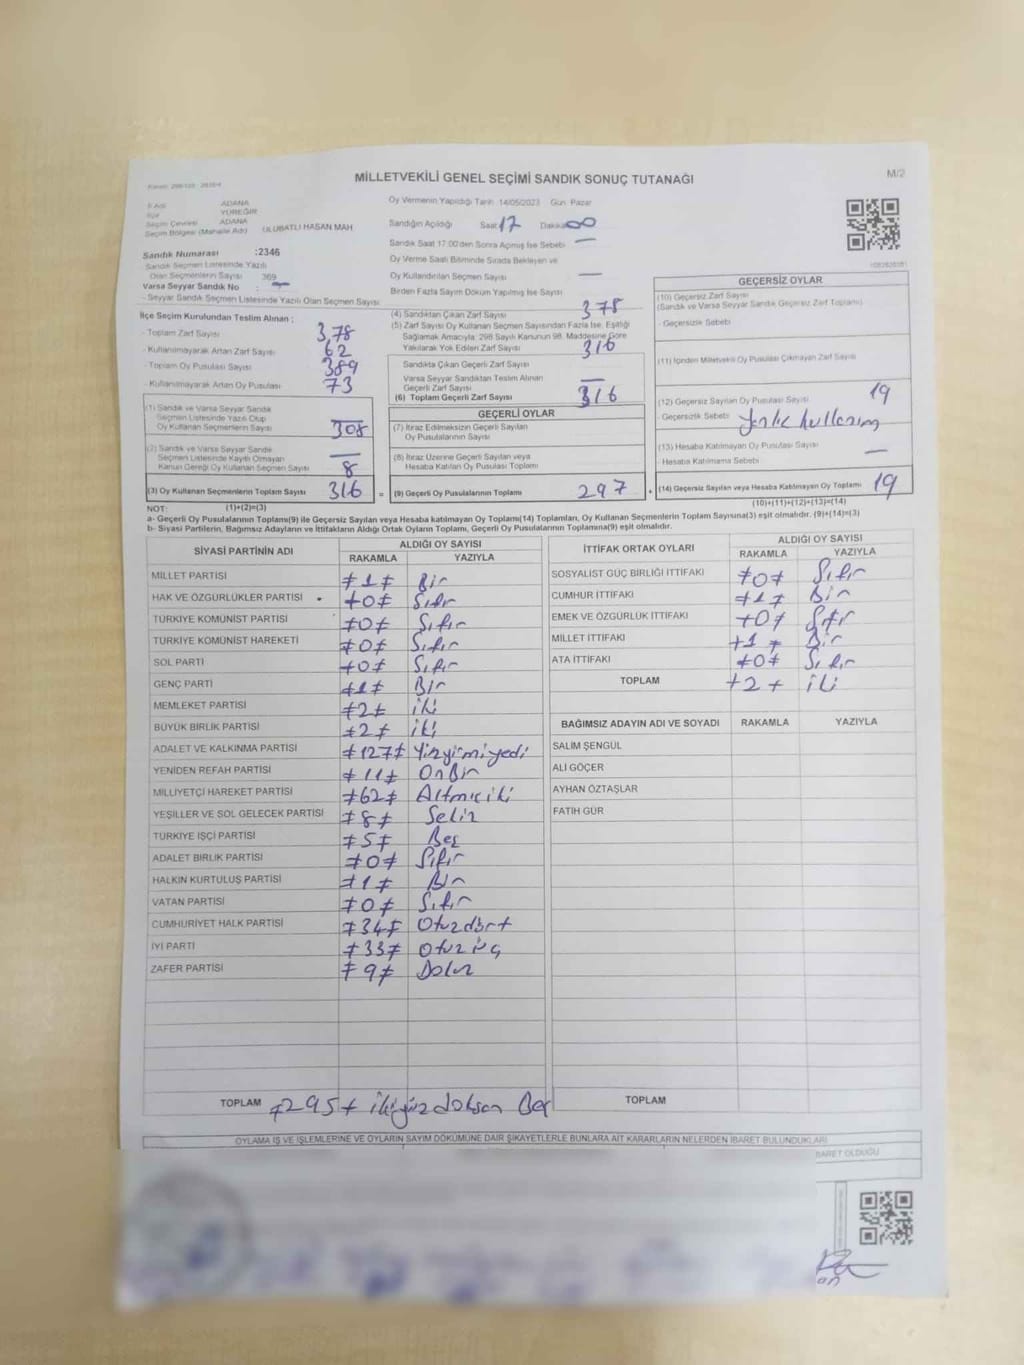 MİLLETVEKİLİ GENEL SEÇİMİ SANDIK SONUÇ TUTANAĞI
M/2
İl Adı ADANA
İlçe YÜREĞİR
Seçim Çevresi ADANA
Seçim Bölgesi (Mahalle Adı) ULUBATLI HASAN MAH
Sandık Numarası :2346
Sandık Seçmen Listesinde Yazılı
Olan Seçmenlerin Sayısı 369
Varsa Seyyar Sandık No : —
- Seyyar Sandık Seçmen Listesinde Yazılı Olan Seçmen Sayısı
Oy Vermenin Yapıldığı Tarih 14/05/2023 Gün Pazar
Sandığın Açıldığı Saat 17 Dakika 00
Sandık Saat 17:00'den Sonra Açılmış İse Sebebi —
Oy Verme Saati Bitiminde Sırada Bekleyen ve
Oy Kullandırılan Seçmen Sayısı —
Birden Fazla Sayım Döküm Yapılmış İse Sayısı
İlçe Seçim Kurulundan Teslim Alınan ;
- Toplam Zarf Sayısı 378
- Kullanılmayarak Artan Zarf Sayısı 62
- Toplam Oy Pusulası Sayısı 389
- Kullanılmayarak Artan Oy Pusulası 73
(1) Sandık ve Varsa Seyyar Sandık
Seçmen Listesinde Yazılı Olup
Oy Kullanan Seçmenlerin Sayısı 308
(2) Sandık ve Varsa Seyyar Sandık
Seçmen Listesinde Kayıtlı Olmayan —
Kanun Gereği Oy Kullanan Seçmen Sayısı 8
(3) Oy Kullanan Seçmenlerin Toplam Sayısı 316 =
(4) Sandıktan Çıkan Zarf Sayısı 378
(5) Zarf Sayısı Oy Kullanan Seçmen Sayısından Fazla İse, Eşitliği
Sağlamak Amacıyla; 298 Sayılı Kanunun 98. Maddesine Göre
Yakılarak Yok Edilen Zarf Sayısı 316
Sandıkta Çıkan Geçerli Zarf Sayısı
Varsa Seyyar Sandıktan Teslim Alınan —
Geçerli Zarf Sayısı
(6) Toplam Geçerli Zarf Sayısı 316
GEÇERLİ OYLAR
(7) İtiraz Edilmeksizin Geçerli Sayılan
Oy Pusulalarının Sayısı
(8) İtiraz Üzerine Geçerli Sayılan veya
Hesaba Katılan Oy Pusulası Toplamı
(9) Geçerli Oy Pusulalarının Toplamı 297 +
GEÇERSİZ OYLAR
(10) Geçersiz Zarf Sayısı
(Sandık ve Varsa Seyyar Sandık Geçersiz Zarf Toplamı)
- Geçersizlik Sebebi
(11) İçinden Milletvekili Oy Pusulası Çıkmayan Zarf Sayısı
(12) Geçersiz Sayılan Oy Pusulası Sayısı 19
- Geçersizlik Sebebi
(13) Hesaba Katılmayan Oy Pusulası Sayısı —
- Hesaba Katılmama Sebebi
(14) Geçersiz Sayılan veya Hesaba Katılmayan Oy Toplamı 19
NOT: (1)+(2)=(3) (10)+(11)+(12)+(13)=(14)
a- Geçerli Oy Pusulalarının Toplamı(9) ile Geçersiz Sayılan veya Hesaba katılmayan Oy Toplamı(14) Toplamları, Oy Kullanan Seçmenlerin Toplam Sayısına(3) eşit olmalıdır. (9)+(14)=(3)
b- Siyasi Partilerin, Bağımsız Adayların ve İttifakların Aldığı Ortak Oyların Toplamı, Geçerli Oy Pusulalarının Toplamına(9) eşit olmalıdır.
SİYASİ PARTİNİN ADI ALDIĞI OY SAYISI
RAKAMLA YAZIYLA
MİLLET PARTİSİ ≠1≠ Bir
HAK VE ÖZGÜRLÜKLER PARTİSİ ≠0≠ Sıfır
TÜRKİYE KOMÜNİST PARTİSİ ≠0≠ Sıfır
TÜRKİYE KOMÜNİST HAREKETİ ≠0≠ Sıfır
SOL PARTİ ≠0≠ Sıfır
GENÇ PARTİ ≠1≠ Bir
MEMLEKET PARTİSİ ≠2≠ iki
BÜYÜK BİRLİK PARTİSİ ≠2≠ iki
ADALET VE KALKINMA PARTİSİ ≠127≠ Yüzyirmiyedi
YENİDEN REFAH PARTİSİ ≠11≠ OnBir
MİLLİYETÇİ HAREKET PARTİSİ ≠62≠ Altmışiki
YEŞİLLER VE SOL GELECEK PARTİSİ ≠8≠ Sekiz
TÜRKİYE İŞÇİ PARTİSİ ≠5≠ Beş
ADALET BİRLİK PARTİSİ ≠0≠ Sıfır
HALKIN KURTULUŞ PARTİSİ ≠1≠ Bir
VATAN PARTİSİ ≠0≠ Sıfır
CUMHURİYET HALK PARTİSİ ≠34≠ Otuzdört
İYİ PARTİ ≠33≠ Otuzüç
ZAFER PARTİSİ ≠9≠ Dokuz
TOPLAM ≠295≠ ikiyüzdoksan Beş
İTTİFAK ORTAK OYLARI ALDIĞI OY SAYISI
RAKAMLA YAZIYLA
SOSYALİST GÜÇ BİRLİĞİ İTTİFAKI ≠0≠ Sıfır
CUMHUR İTTİFAKI ≠1≠ Bir
EMEK VE ÖZGÜRLÜK İTTİFAKI ≠0≠ Sıfır
MİLLET İTTİFAKI ≠1≠ Bir
ATA İTTİFAKI ≠0≠ Sıfır
TOPLAM ≠2≠ iki
BAĞIMSIZ ADAYIN ADI VE SOYADI RAKAMLA YAZIYLA
SALİM ŞENGÜL
ALİ GÖÇER
AYHAN ÖZTAŞLAR
FATİH GÜR
TOPLAM
OYLAMA İŞ VE İŞLEMLERİNE VE OYLARIN SAYIM DÖKÜMÜNE DAİR ŞİKAYETLERLE BUNLARA AİT KARARLARIN NELERDEN İBARET BULUNDUKLARI
BARET OLDUĞU